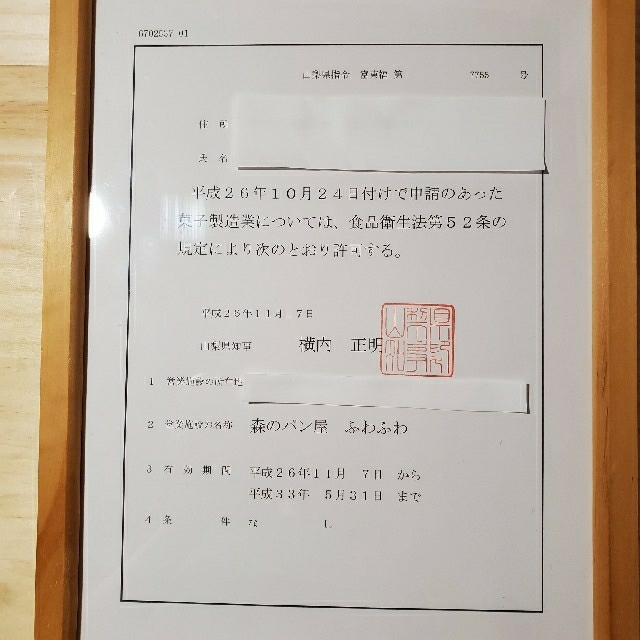 6702537-01
山梨県指令 富東福 第 7755 号
住所
氏名
平成26年10月24日付けで申請のあった
菓子製造業については、食品衛生法第52条の
規定により次のとおり許可する。
平成26年11月 7日
山梨県知事 横内 正明
1 営業施設の所在地
2 営業施設の名称 森のパン屋 ふわふわ
3 有効期間 平成26年11月 7日 から
平成33年 5月31日 まで
4 条件 なし